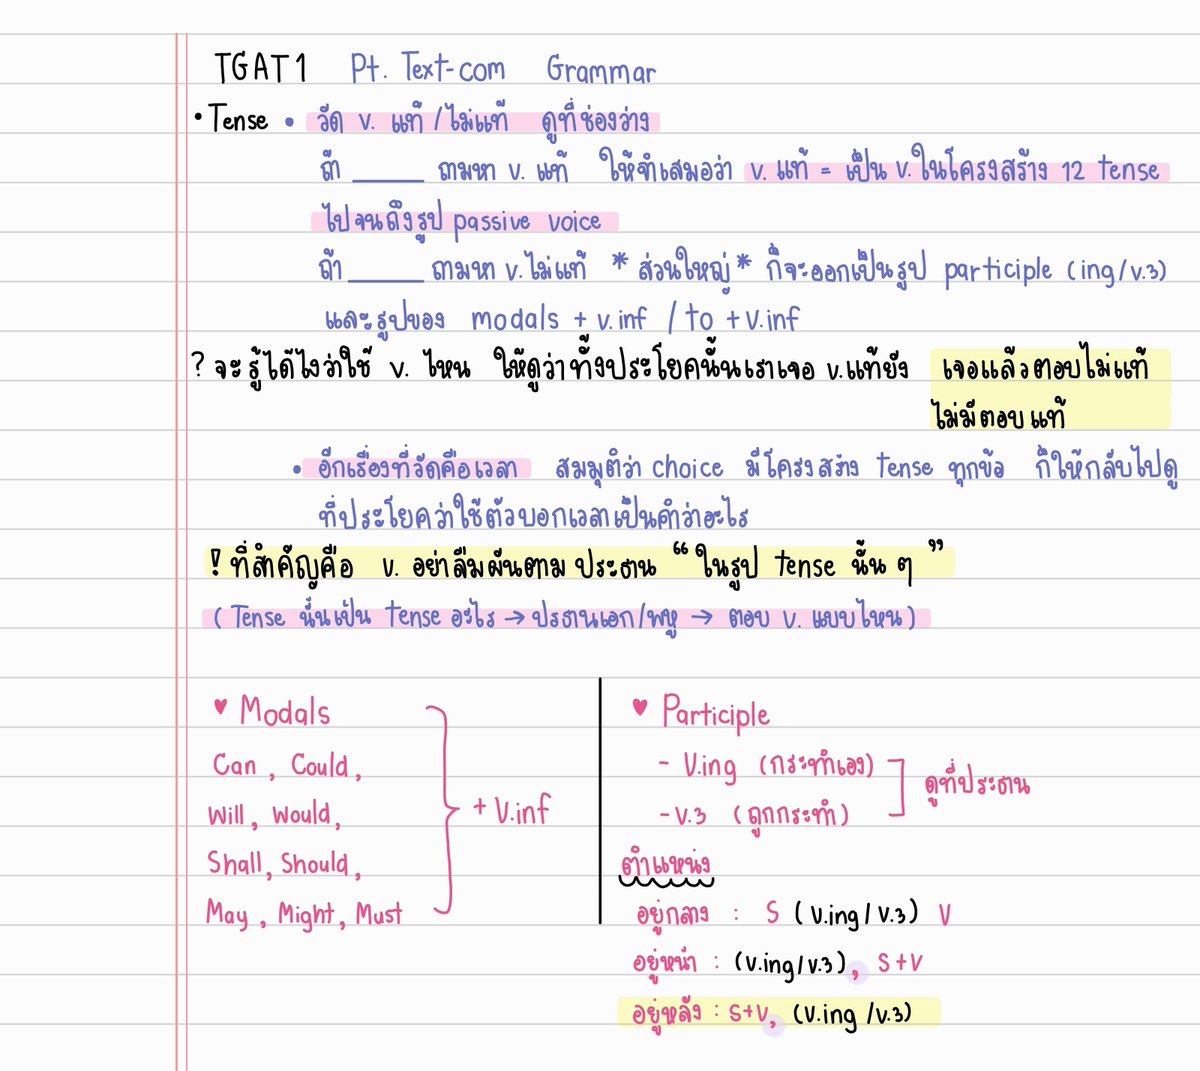 TGAT1 Pt. Text-com Grammar
• Tense • วัด v. แท้ / ไม่แท้ ดูที่ช่องว่าง
ถ้า ______ ถามหา v. แท้ ให้จำเสมอว่า v. แท้ = เป็น v. ในโครงสร้าง 12 tense
ไปจนถึงรูป passive voice
ถ้า ______ ถามหา v. ไม่แท้ * ส่วนใหญ่ * ก็จะออกเป็นรูป participle (ing/v.3)
และรูปของ modals + v.inf / to + v.inf
? จะรู้ได้ไงว่าใช้ v. ไหน ให้ดูว่าทั้งประโยคนั้นเราเจอ v.แท้ยัง เจอแล้วตอบไม่แท้
ไม่มีตอบแท้
• อีกเรื่องที่วัดคือเวลา สมมุติว่า choice มีโครงสร้าง tense ทุกข้อ ก็ให้กลับไปดู
ที่ประโยคว่าใช้ตัวบอกเวลาเป็นคำว่าอะไร
! ที่สำคัญคือ v. อย่าลืมผันตามประธาน “ ในรูป tense นั้น ๆ ”
( Tense นั้นเป็น tense อะไร → ประธานเอก/พหู → ตอบ v. แบบไหน )
♥ Modals
Can , Could ,
Will , Would ,
Shall , Should ,
May , Might , Must
+ V.inf
♥ Participle
- V.ing (กระทำเอง)
- v.3 (ถูกกระทำ)
ดูที่ประธาน
ตำแหน่ง
อยู่กลาง : S (v.ing / v.3) V
อยู่หน้า : (v.ing/v.3) , S+V
อยู่หลัง : S+V, (v.ing /v.3)